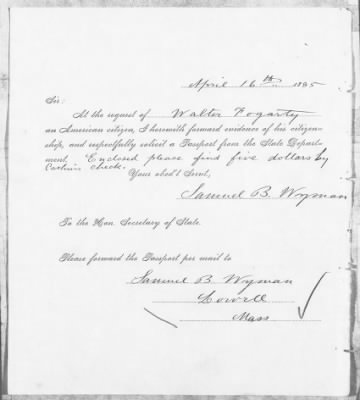 April 16th 1885
Sir:
At the request of Walter Fogarty
an American citizen, I herewith forward evidence of his citizen-
ship, and respectfully solicit a Passport from the State Depart-
ment. Enclosed please find five dollars by
check.
Your obed't Servt,
Samuel B. Wyman
To the Hon. Secretary of State.
Please forward the Passport per mail to
Samuel B Wyman
Lowell
Mass